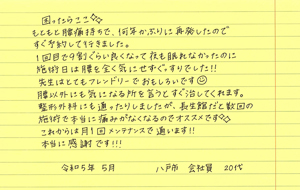 困ったらここ✨
もともと腰痛持ちで、何年かぶりに再発したので
すぐ予約して行きました。
1回目で9割ぐらい良くなって夜も眠れなかったのに
施術日は腰を全く気にせずぐっすりでした!!
先生はとてもフレンドリーでおもしろいです☺
腰以外にも気になる所を言うとすぐ治してくれます。
整形外科にも通ったりしましたが、長生館だと数回の
施術で本当に痛みがなくなるのでオススメです✨
これからは月1回メンテナンスで通います!!
本当に感謝です!!!
令和5年 5月 八戸市 会社員 20代